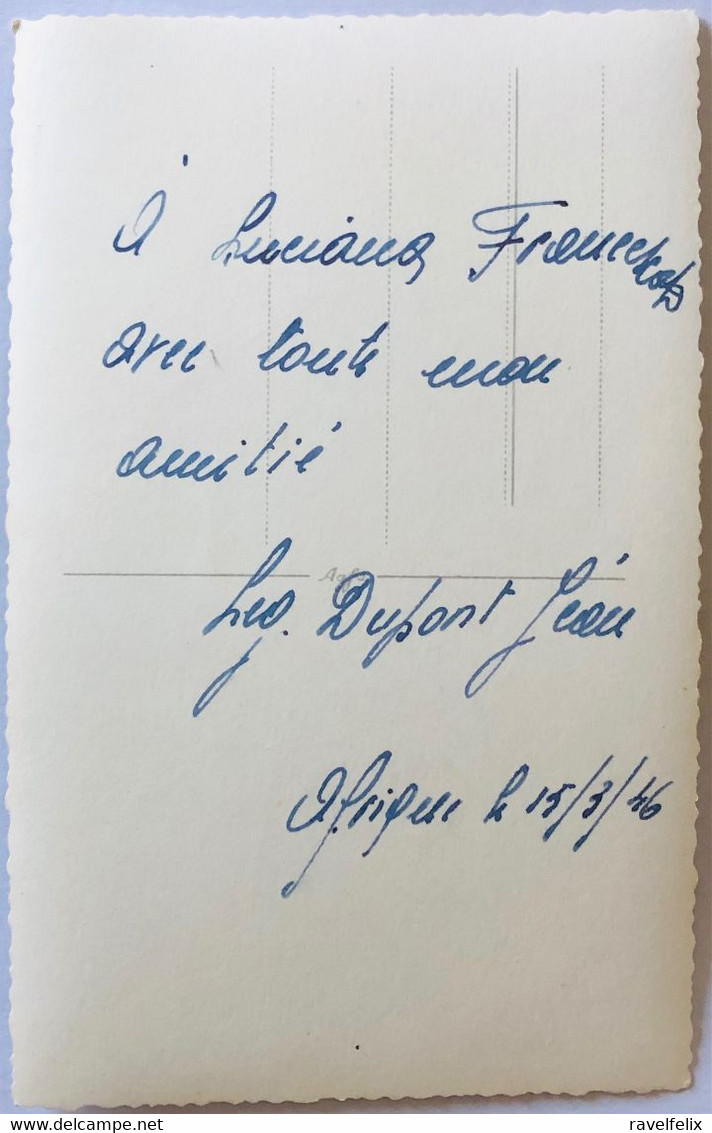 À Luciana
avec toute mon
amitié
Agfa
Leg. Dupont Jean
Afrique le 15/3/46
ravelfelix
Delcampe.net